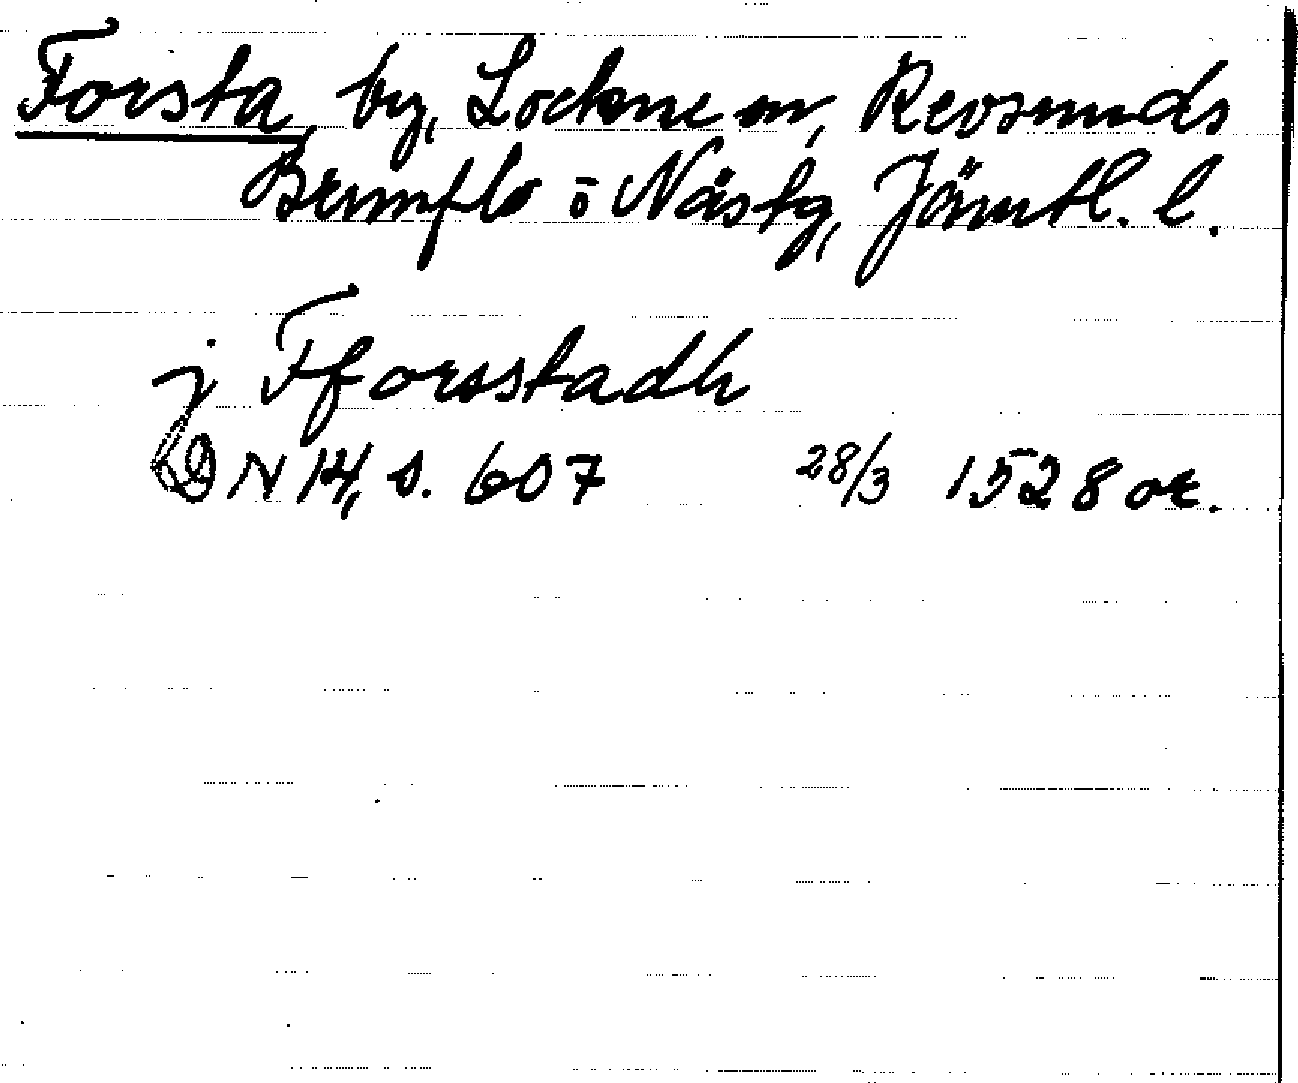 Forsta by, Lockne sn, Revsunds
Brunflo o Näsk tg, Jämtl. l.
j Fforsstadh
DN 14, s. 607 28/3 1528 or.